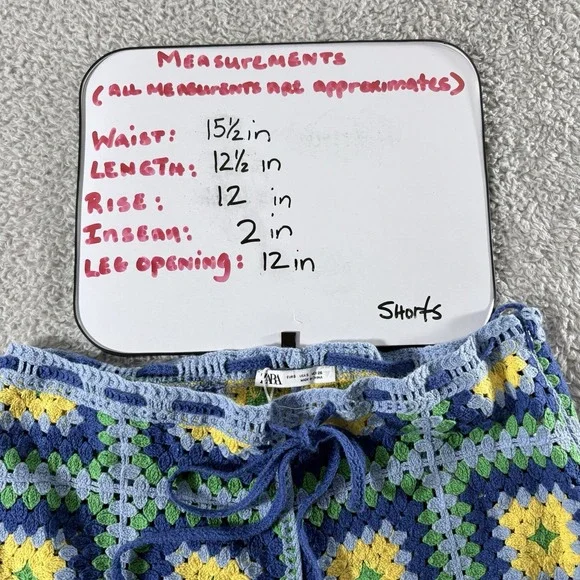 MEASUREMENTS
(ALL MEASURMENTS ARE approximates)
WAIST: 15 1/2 in
LENGTH: 12 1/2 in
RISE: 12 in
INSEAM: 2 in
LEG OPENING: 12 in
SHORTS
ZARA